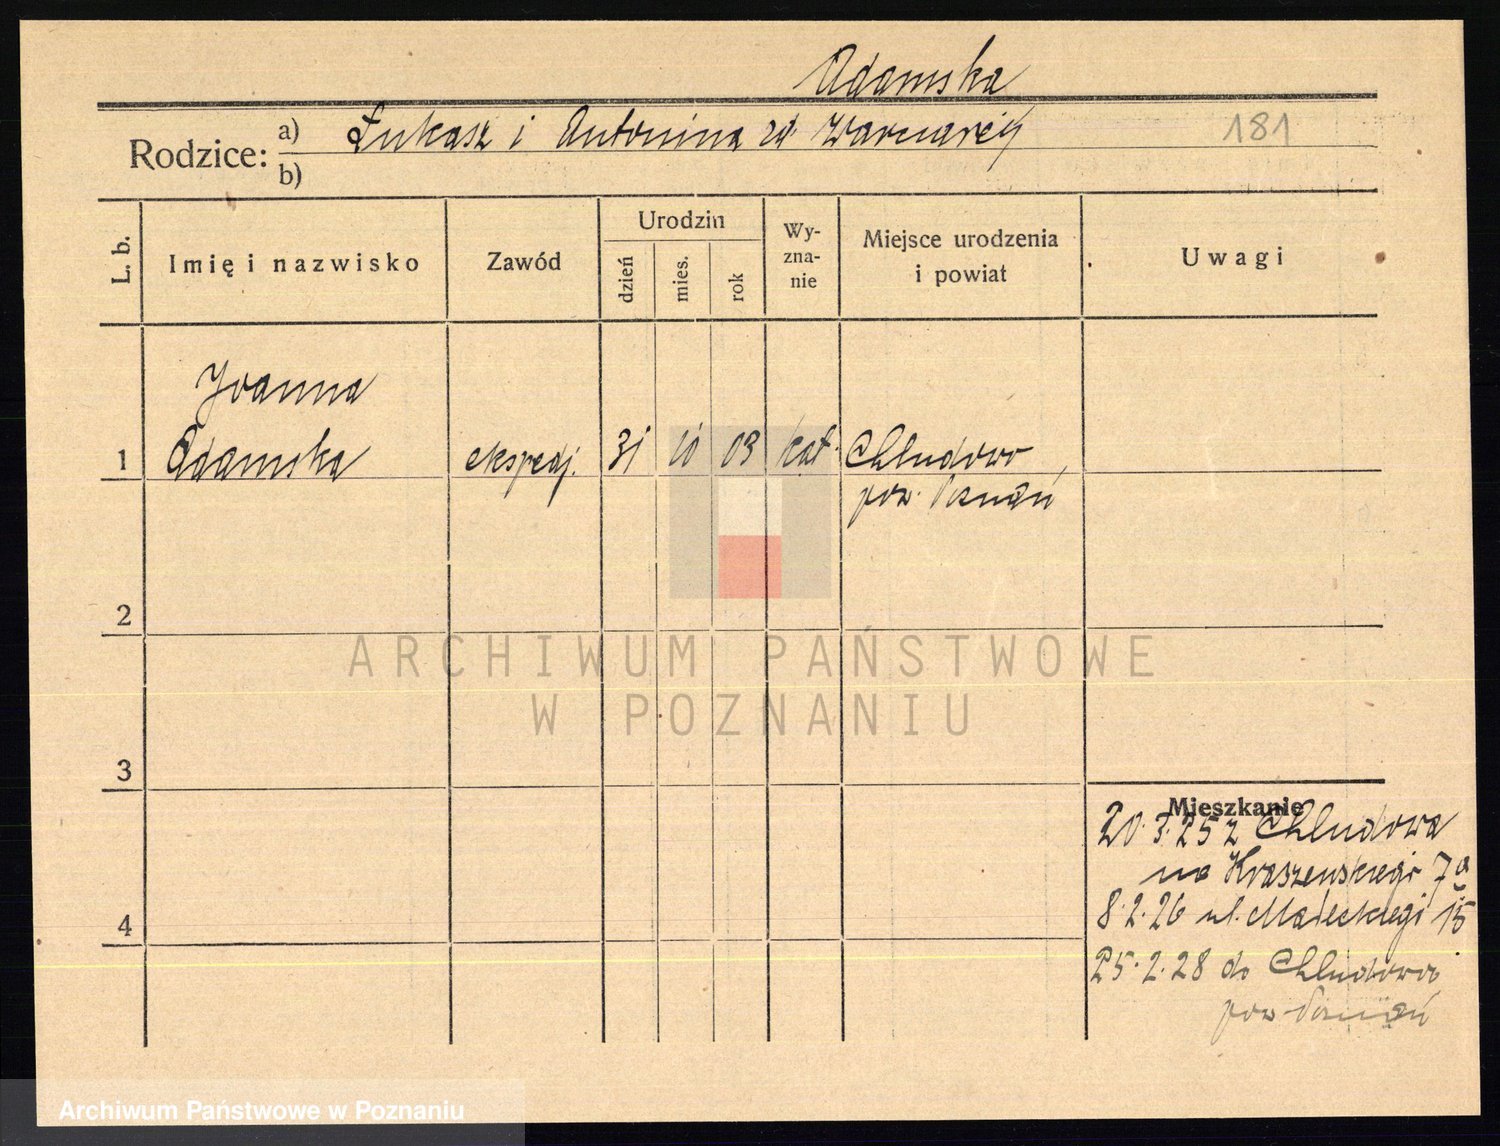 Adamska
Rodzice: a) Łukasz i Antonina zd.
181
b)
L. b.
Imię i nazwisko
Zawód
Urodzin
dzień
mies.
rok
Wy-
zna-
nie
Miejsce urodzenia
i powiat
Uwagi
Joanna
1 Adamska ekspedj. 31 10 03 kat. Chludowo,
pow. Poznań
2
ARCHIWUM PAŃSTWOWE
W POZNANIU
3
Mieszkanie
20.3.25 z Chludowa
na Kraszewskiego 7a
4
8.2.26 ul. Małeckiego 15
25.2.28 do Chludowo
pow Poznań
Archiwum Państwowe w Poznaniu